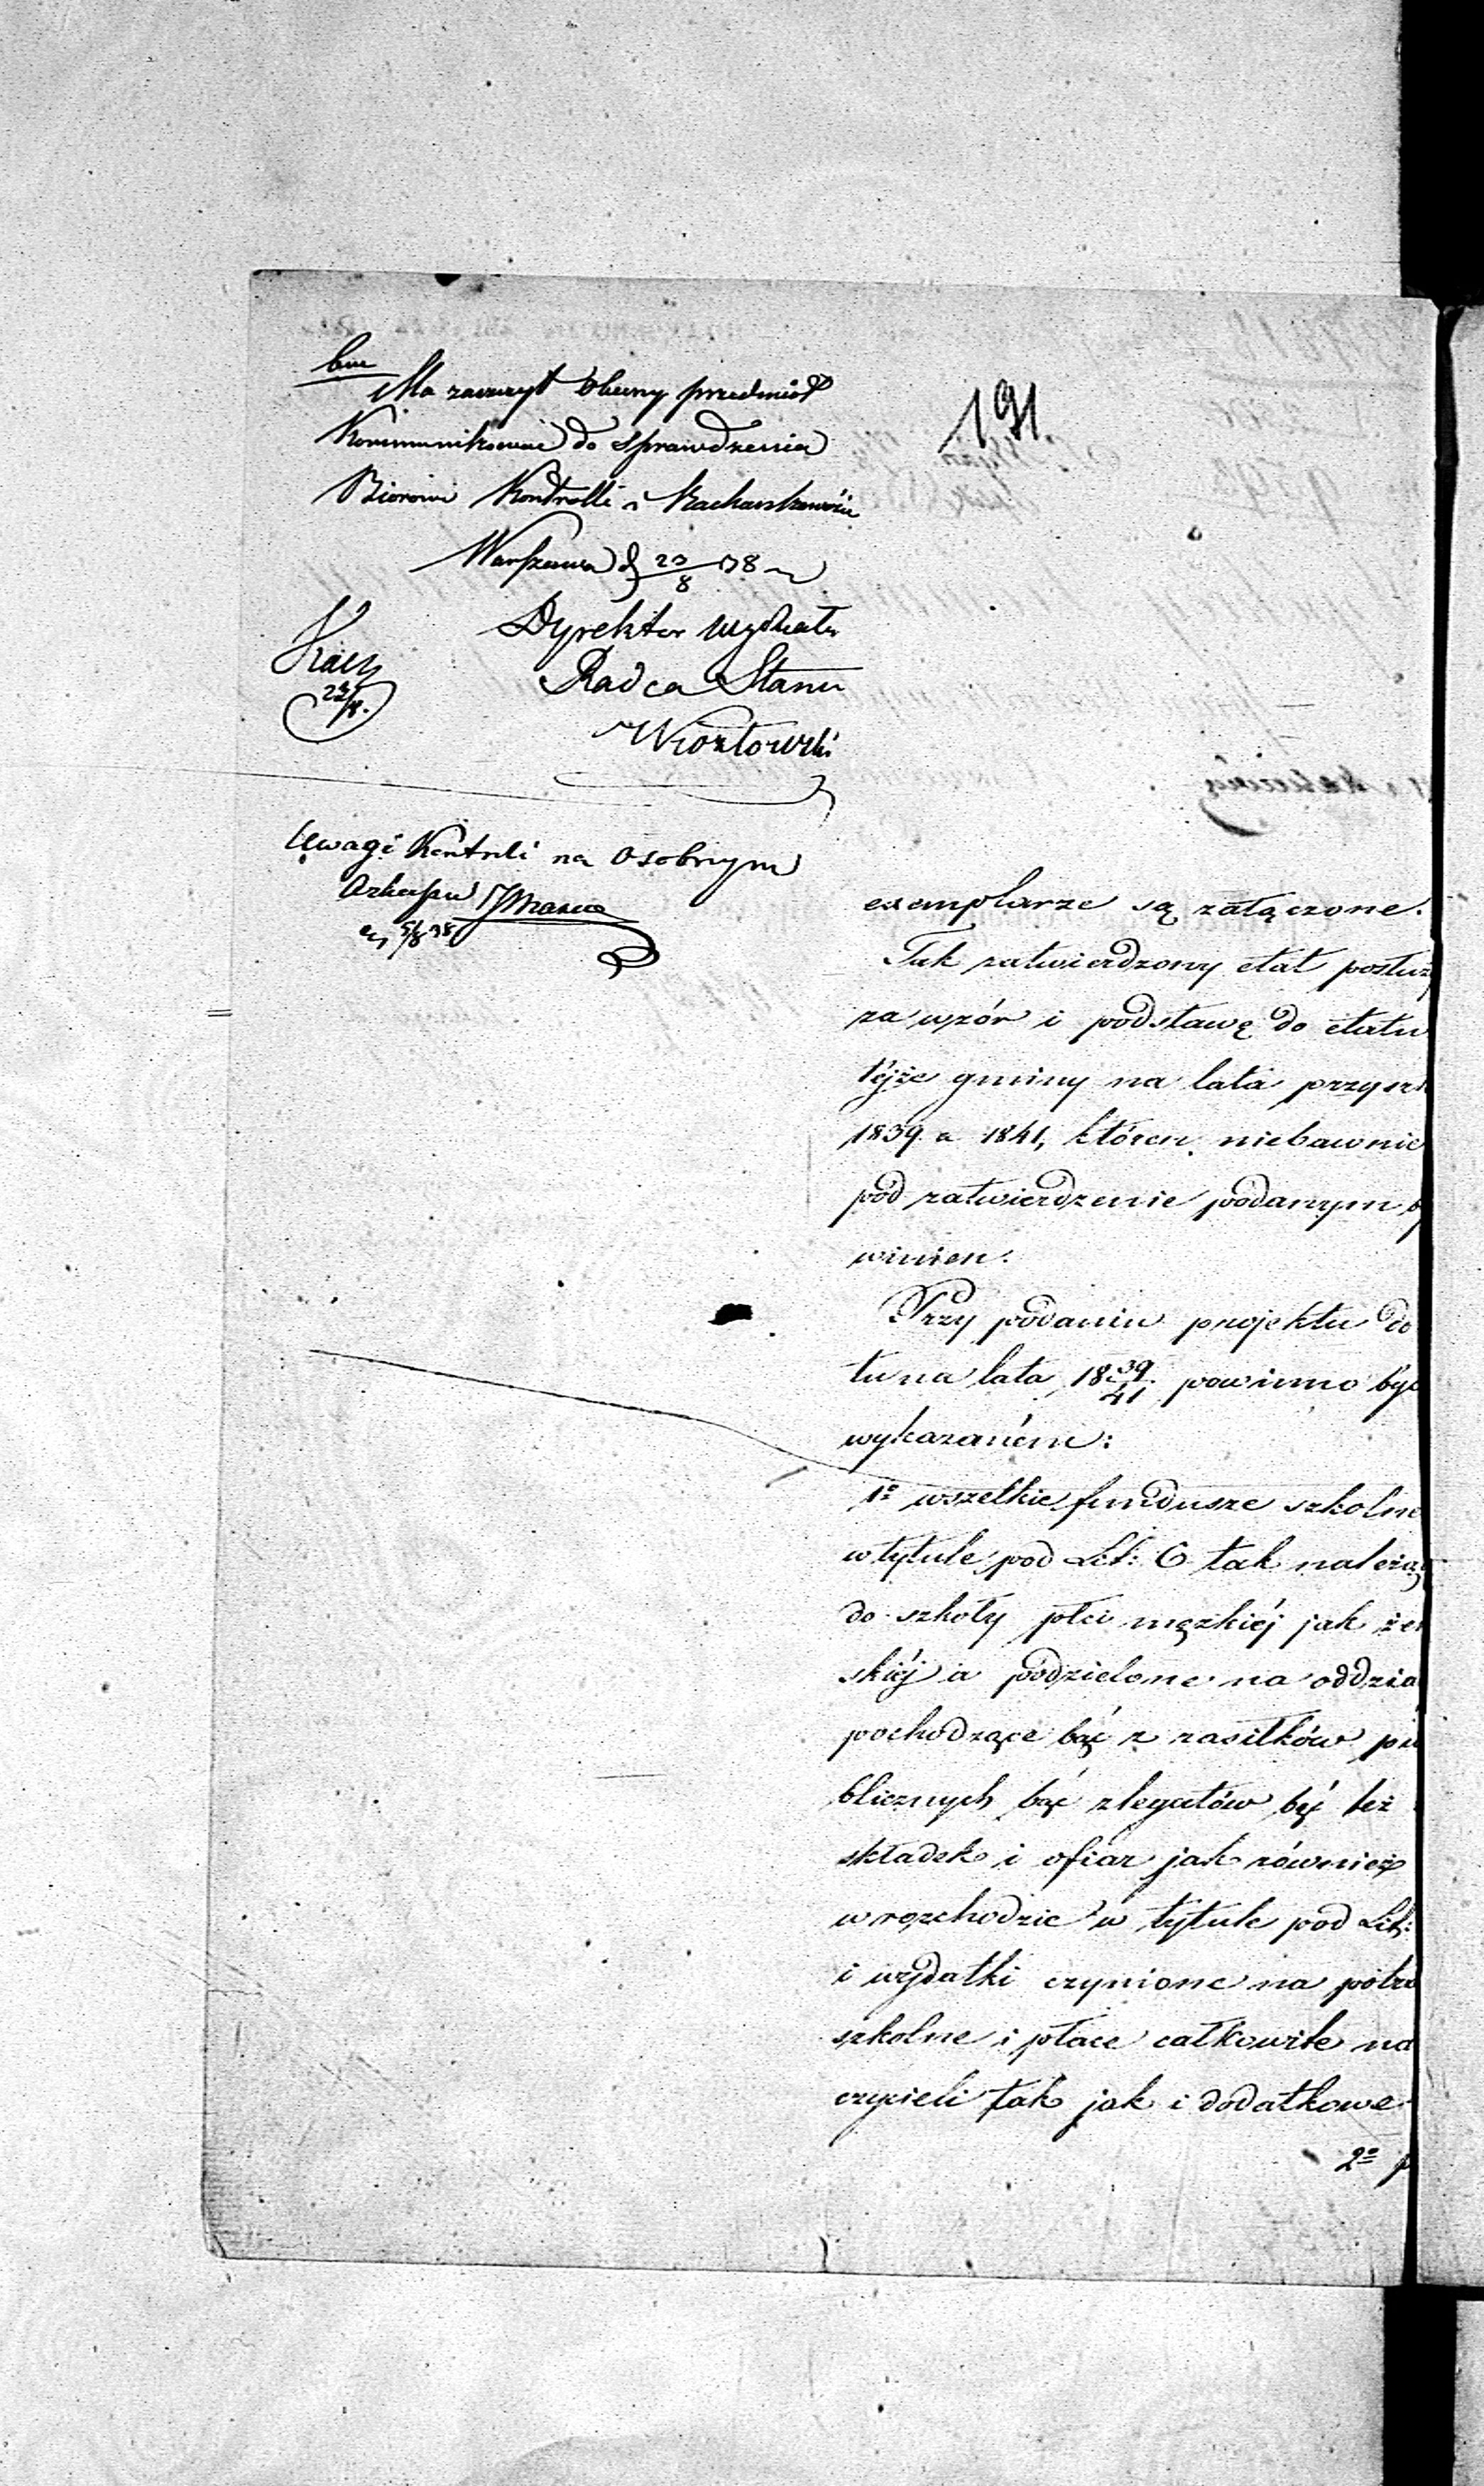 Ma zaszczyt obecny przedmiot
Kommunikować do sprawdzenia
Biorowi Kontrolli i Rachunkowości
Warszawa d 23/8 38
Dyrektor Wydziału
Radca Stanu
23/8.
Uwagi Kontroli na osobnym
Arkuszu
5/8 38
191
exemplarze są załączone.
Tak zatwierdzony etat posłuż
za wzór i podstawę do etatu
téjże gminy na lata przysz
1839 a 1841, któren niebawnie
pod zatwierdzenie podanym
winien.
Przy podaniu projektu do
tu na lata 18 39/41 powinno być
wykazaném:
1º wszelkie fundusze szkolne
w tytule pod Lit: C tak należą
do szkoły płci męzkiéj jak żeń
skiéj a podzielone na oddzia
pochodzące bąć z zasiłków pu
blicznych bąć z legatów bąć też
składek i ofiar jak również
w rozchodzie w tytule pod Lit:
i wydatki czynione na potrz
szkolne i płace całkowite na
czycieli tak jak i dodatkowe
2º p